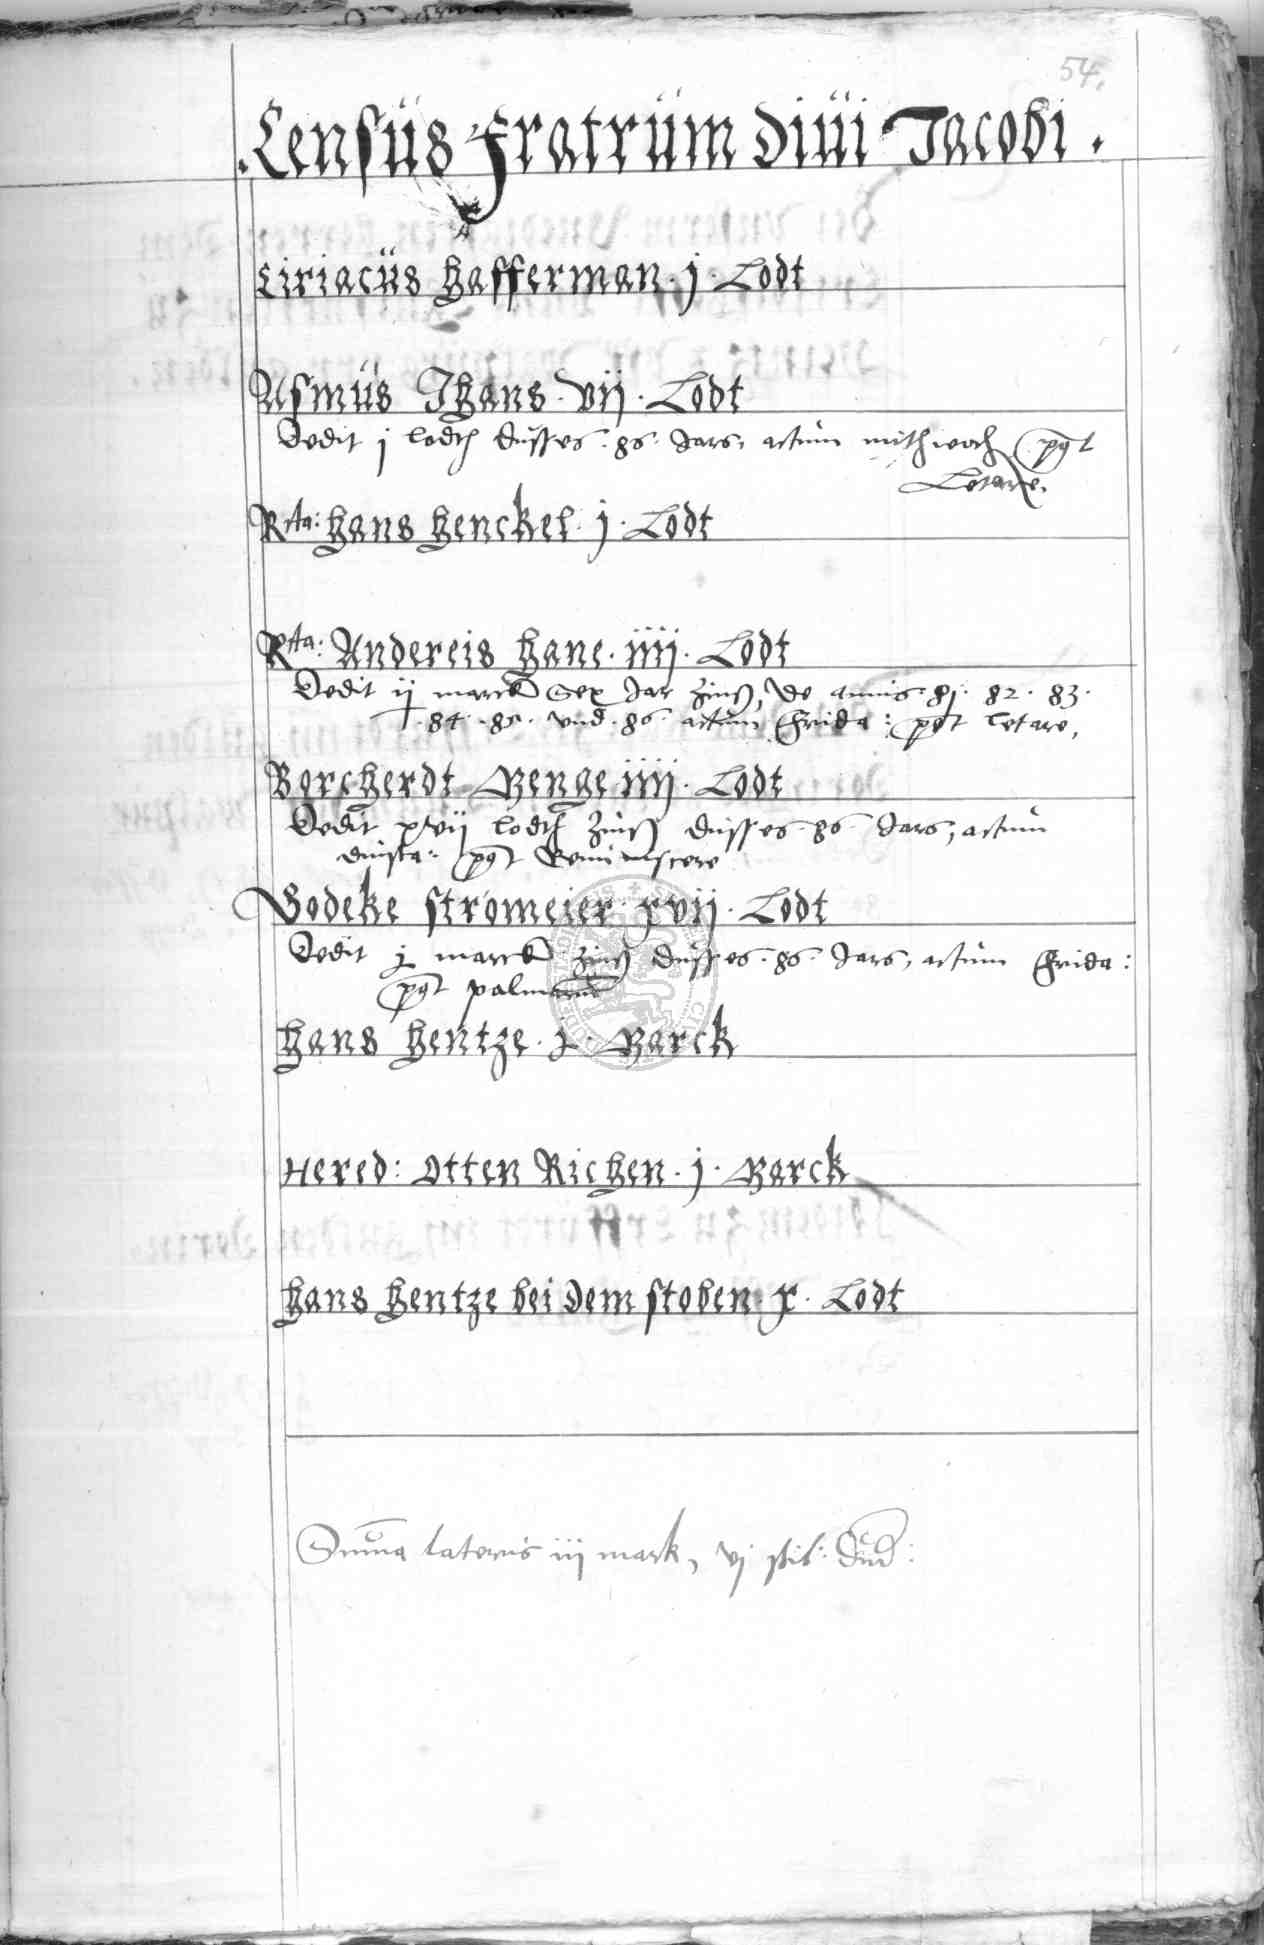 54.
.Censüs Fratrüm Diüi Jacobi.
Ciriacüs Hafferman . j . Lodt
Asmüs Ihans . vij . Lodt
Dedit j lodth dusses . 86 . Jars, actum mithwoch post
Letare.
Rta: Hans Henckel . j . Lodt
Rta: Andereis Hane . iiij . Lodt
Dedit ij marck Sex Jar Zinß, de annis . 81 . 82 . 83 .
. 84 . 85 . vnd . 86 . actum Frida: post letare,
Borcherdt Menge iiij . Lodt
Dedit xvij lodth Zinß dusses . 86 . Jars, actum
dinsta: post Reminiscere
Bodeke stromeier . xvij . Lodt
Dedit j marck Zinß dusses . 86 . Jars, actum Frida:
post palmarum
Hans Hentze . j . Marck
Hered: Otten Richen . j . Marck
Hans Hentze bei dem stoben . x . Lodt
Summa lateris iij mark, vj